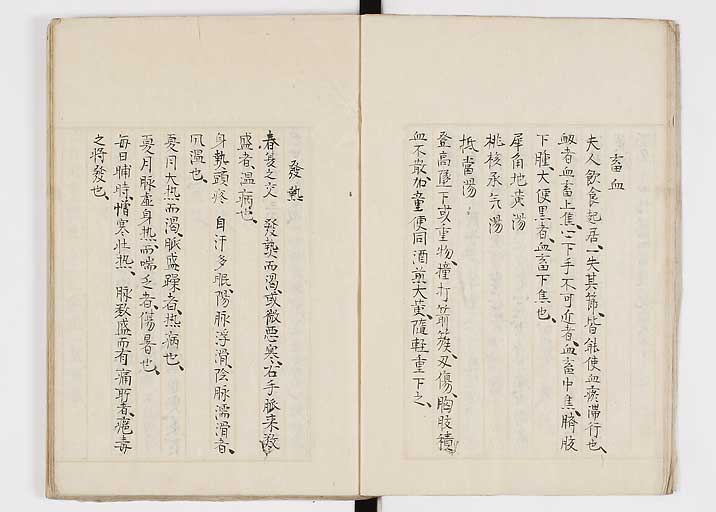 畜血
夫人飲食起居、一失其節、皆能使血瘀滞行也、
衂者血畜上焦、心下手不可近者、血畜中焦、臍腹
下腫、大便黒者、血畜下焦也、
犀角地黄湯
桃核承气湯
抵當湯
登髙墜下或重物、撞打、箭簇刃傷、胸腹積
血不散、以童便同酒煎大黄、隨軽重下之、
發熱
春夏之交 發熱而渇、或微悪寒、右手脈来数
盛者、温病也、
身熱頭疼 自汗多眠、陽脉浮滑、陰脉濡滑者、
风温也、
夏月大热而渇、脈盛躁者、热病也、
夏月脉虚身热而喘乏者、傷暑也、
毎日晡時、憎寒壮热、 脉数盛而有痛所者、瘡毒
之将發也、